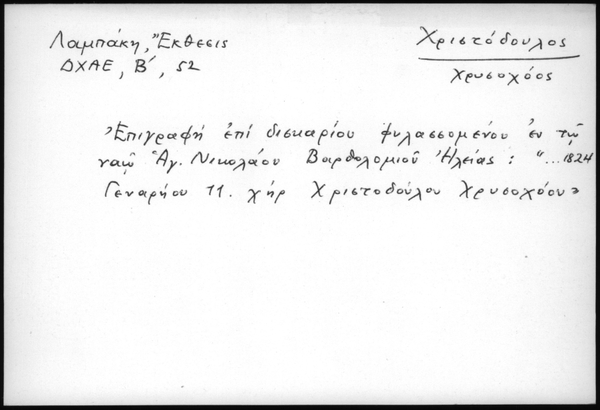 Λαμπάκη, Ἔκθεσις
ΔΧΑΕ, Β΄, 52
Χριστόδουλος
χρυσοχόος
Ἐπιγραφή ἐπί δισκαρίου φυλασσομένου ἐν τῷ
ναῷ Ἁγ. Νικολάου Βαρθολομιοῦ Ἠλείας: "...1824
Γεναρήου 11. χήρ Χριστοδούλου Χρυσοχόου"